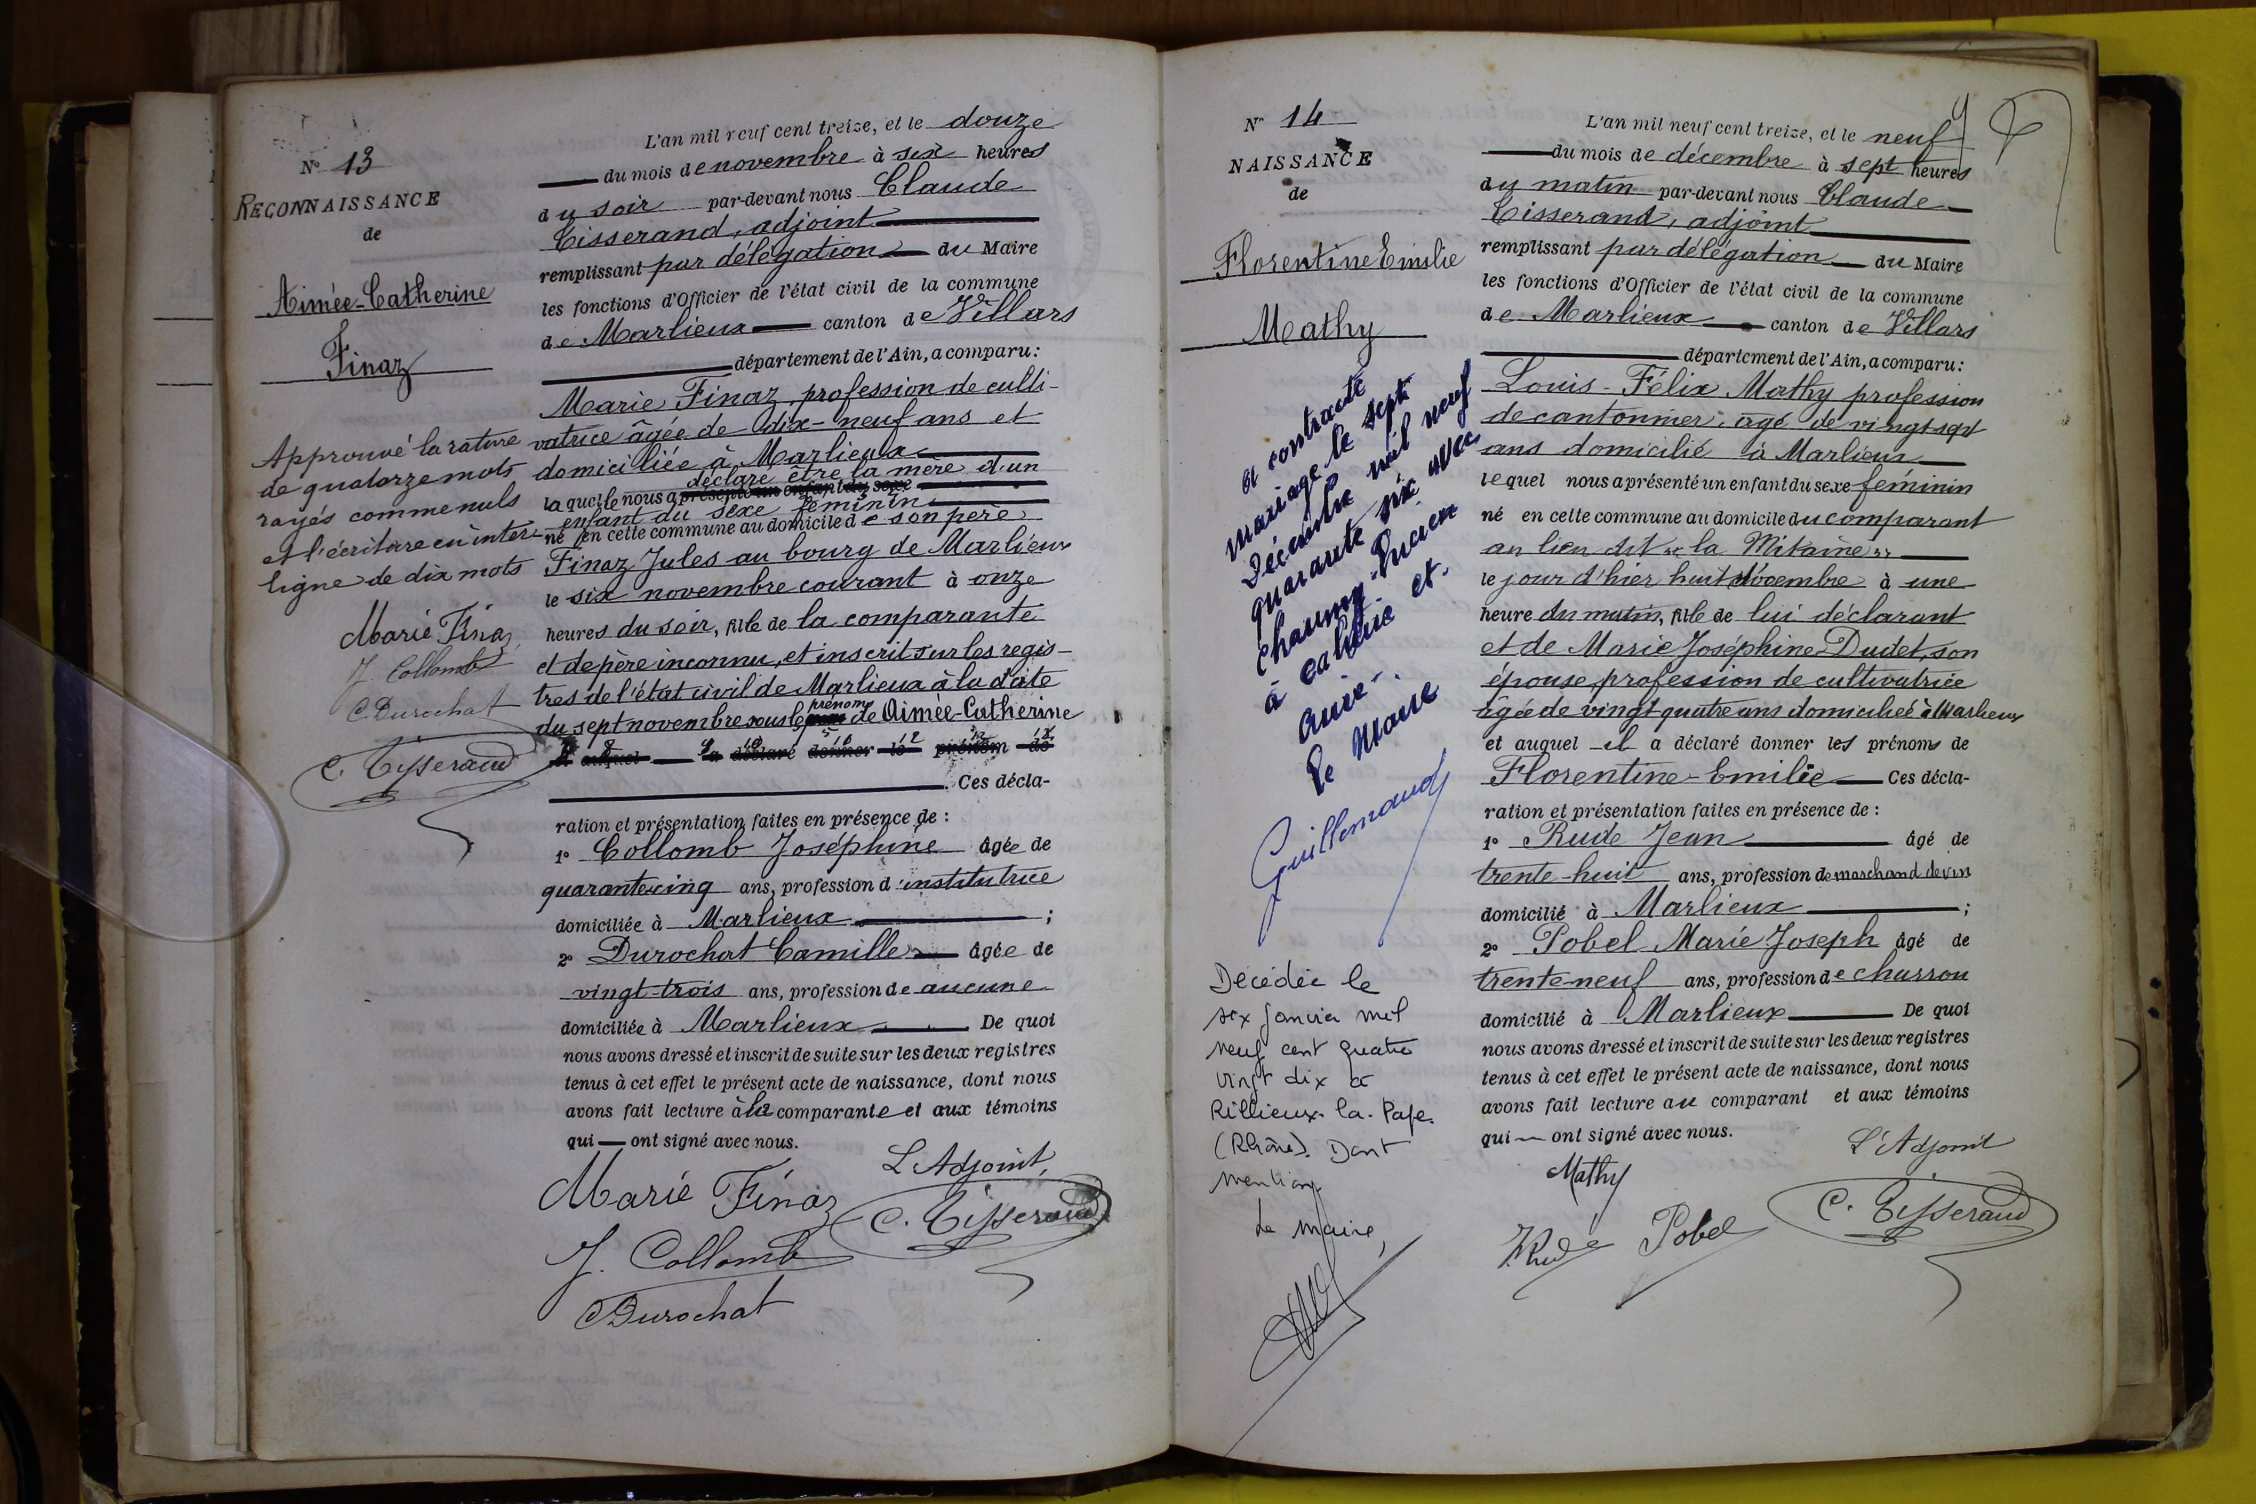 N° 13
RECONNAISSANCE
de
Aimée-Catherine
Finaz
Approuvé la rature
de quatorze mots
rayés comme nuls
et l'écriture en inter-
ligne de dix mots
Marie Finaz
J. Collomb
C. Durochat
C. Tisserand
L'an mil neuf cent treize, et le douze
du mois de novembre à six heures
du soir par-devant nous Claude
Tisserand, adjoint
remplissant par délégation du Maire
les fonctions d'Officier de l'état civil de la commune
de Marlieux canton de Villars
département de l'Ain, a comparu:
Marie Finaz, profession de culti-
vatrice âgée de dix-neuf ans et
domiciliée à Marlieux
déclare être la mère d'un
laquelle nous a présenté un enfant du sexe
enfant du sexe féminin
né en cette commune au domicile de son père
Finaz Jules au bourg de Marlieux
le six novembre courant à onze
heures du soir, fille de la comparante
et de père inconnu, et inscrit sur les regis-
tres de l'état civil de Marlieux à la date
du sept novembre sous le prénom de Aimée-Catherine
et auquel a déclaré donner le prénom de
Ces décla-
ration et présentation faites en présence de :
1° Collomb Joséphine âgée de
quarante cinq ans, profession d'institutrice
domiciliée à Marlieux ;
2° Durochat Camille âgée de
vingt-trois ans, profession de aucune
domiciliée à Marlieux De quoi
nous avons dressé et inscrit de suite sur les deux registres
tenus à cet effet le présent acte de naissance, dont nous
avons fait lecture à la comparante et aux témoins
qui ont signé avec nous.
L'Adjoint,
Marie Finaz
C. Tisserand
J. Collomb
C Durochat
N° 14
NAISSANCE
de
Florentine Emilie
Mathy
a contracté
mariage le sept
Décembre mil neuf
quarante six avec
Chaumy Lucien
à Caluire et
Cuire
Le Maire
Guillemaud
Décédée le
six janvier mil
neuf cent quatre
vingt dix à
Rillieux-la-Pape
(Rhône). Dont
mention
Le maire,
9
L'an mil neuf cent treize, et le neuf
du mois de décembre à sept heures
du matin par-devant nous Claude
Tisserand, adjoint
remplissant par délégation du Maire
les fonctions d'Officier de l'état civil de la commune
de Marlieux canton de Villars
département de l'Ain, a comparu:
Louis-Félix Mathy profession
de cantonnier, âgé de vingt sept
ans domicilié à Marlieux
lequel nous a présenté un enfant du sexe féminin
né en cette commune au domicile du comparant
au lieu dit « la Mitaine »
le jour d'hier huit décembre à une
heure du matin, fille de lui déclarant
et de Marie Joséphine Dudet, son
épouse, profession de cultivatrice
âgée de vingt quatre ans domiciliée à Marlieux
et auquel il a déclaré donner les prénoms de
Florentine-Emilie Ces décla-
ration et présentation faites en présence de :
1° Rude Jean âgé de
trente-huit ans, profession de marchand de vin
domicilié à Marlieux ;
2° Pobel Marie Joseph âgé de
trente neuf ans, profession de charron
domicilié à Marlieux De quoi
nous avons dressé et inscrit de suite sur les deux registres
tenus à cet effet le présent acte de naissance, dont nous
avons fait lecture au comparant et aux témoins
qui ont signé avec nous.
L'Adjoint
Mathy
J. Rude Pobel
C. Tisserand